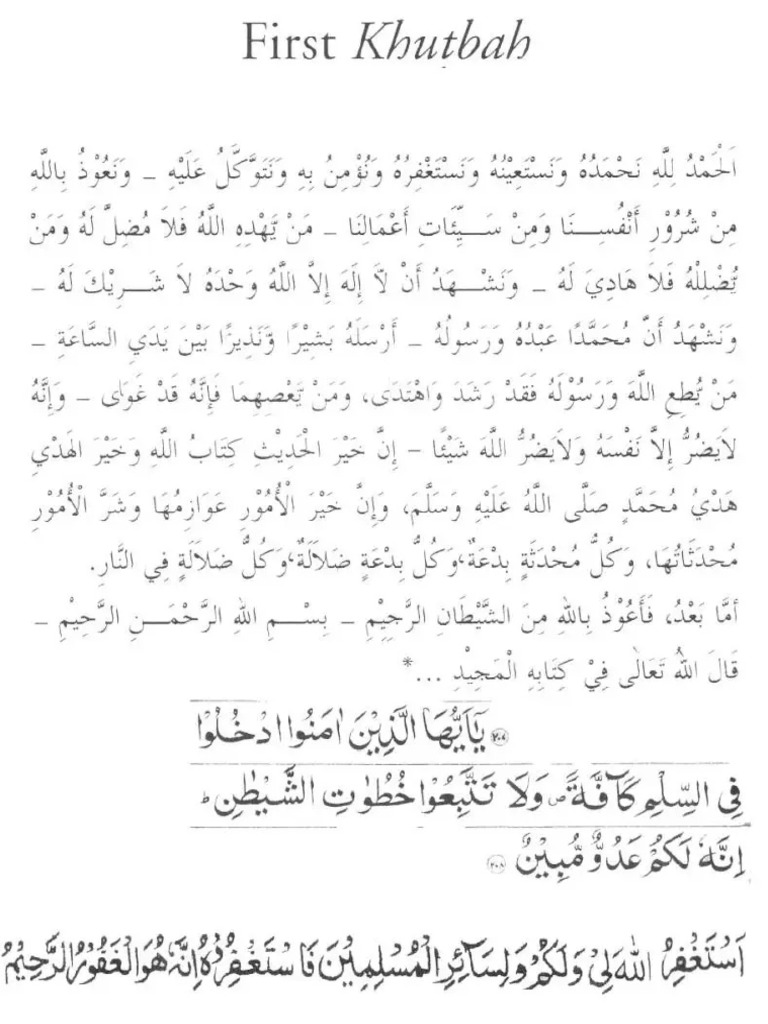 First Khutbah
اَلْحَمْدُ لِلَّهِ نَحْمَدُهُ وَنَسْتَعِيْنُهُ وَنَسْتَغْفِرُهُ وَنُؤْمِنُ بِهِ وَنَتَوَّكَّلُ عَلَيْهِ – وَنَعُوْذُ بِاللَّهِ
مِنْ شُرُوْرِ أَنْفُسِنَا وَمِنْ سَيِّئَاتِ أَعْمَالِنَا – مَنْ يَّهْدِهِ اللَّهُ فَلاَ مُضِلَّ لَهُ وَمَنْ
يُّضْلِلْهُ فَلاَ هَادِيَ لَهُ – وَنَشْهَدُ أَنْ لاَّ إِلَهَ إِلاَّ اللَّهُ وَحْدَهُ لاَ شَرِيْكَ لَهُ –
وَنَشْهَدُ أَنَّ مُحَمَّدًا عَبْدُهُ وَرَسُولُهُ – أَرْسَلَهُ بَشِيْرًا وَّنَذِيرًا بَيْنَ يَدَيِ السَّاعَةِ –
مَنْ يُّطِعِ اللَّهَ وَرَسُوْلَهُ فَقَدْ رَشَدَ وَاهْتَدَى، وَمَنْ يَّعْصِهِمَا فَإِنَّهُ قَدْ غَوَاى – وَإِنَّهُ
لاَيَضُرُّ إِلاَّ نَفْسَهُ وَلاَيَضُرُّ اللَّهَ شَيْئًا – إِنَّ خَيْرَ الْحَدِيْثِ كِتَابُ اللَّهِ وَخَيْرَ الْهَدْيِ
هَدْيُ مُحَمَّدٍ صَلَّى اللَّهُ عَلَيْهِ وَسَلَّمَ، وَإِنَّ خَيْرَ الْأُمُوْرِ عَوَازِمُهَا وَشَرَّ الْأُمُوْرِ
مُحْدَثَاتُهَا، وَكُلُّ مُحْدَثَةٍ بِدْعَةٌ، وَكُلُّ بِدْعَةٍ ضَلاَلَةٌ، وَكُلُّ ضَلاَلَةٍ فِي النَّارِ.
أمَّا بَعْدُ، فَأَعُوْذُ بِاللهِ مِنَ الشَّيْطَانِ الرَّجِيْمِ – بِسْمِ اللهِ الرَّحْمَنِ الرَّحِيْمِ –
قَالَ اللهُ تَعَالَى فِيْ كِتَابِهِ الْمَجِيْدِ ...*
يٰٓاَيُّهَا الَّذِيْنَ اٰمَنُوا ادْخُلُوْا
فِي السِّلْمِ كَآفَّةً ۖ وَلَا تَتَّبِعُوْا خُطُوٰتِ الشَّيْطٰنِ ؕ
اِنَّهٗ لَكُمْ عَدُوٌّ مُّبِيْنٌ ﴿۲۰۸﴾
اَسْتَغْفِرُ اللهَ لِيْ وَلَكُمْ وَلِسَآئِرِ الْمُسْلِمِيْنَ فَاسْتَغْفِرُوْهُ اِنَّهٗ هُوَ الْغَفُوْرُ الرَّحِيْمُ